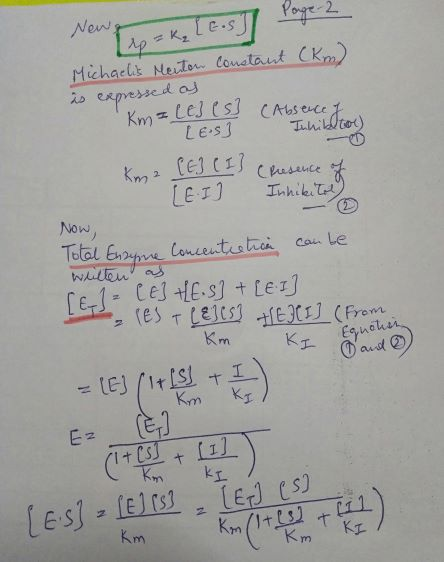 Page-2
Now, rp = K2 [E·S]
Michaelis Menton Constant (Km)
is expressed as
Km = [E][S] / [E·S] (Absence of Inhibitor) — ①
Km = [E][I] / [E·I] (Presence of Inhibitor) — ②
Now,
Total Enzyme Concentration can be
written as
[ET] = [E] + [E·S] + [E·I]
= [E] + [E][S] / Km + [E][I] / KI (From Equation ① and ②)
= [E] (1 + [S] / Km + I / KI)
E = [ET] / (1 + [S] / Km + [I] / KI)
[E·S] = [E][S] / Km = [ET] [S] / Km (1 + [S] / Km + [I] / KI)